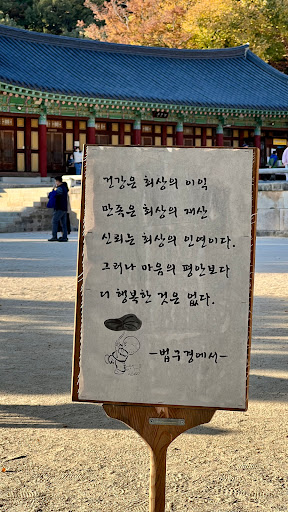 건강은 최상의 이익
만족은 최상의 재산
신뢰는 최상의 인연이다.
그러나 마음의 평안보다
더 행복한 것은 없다.
-법구경에서-